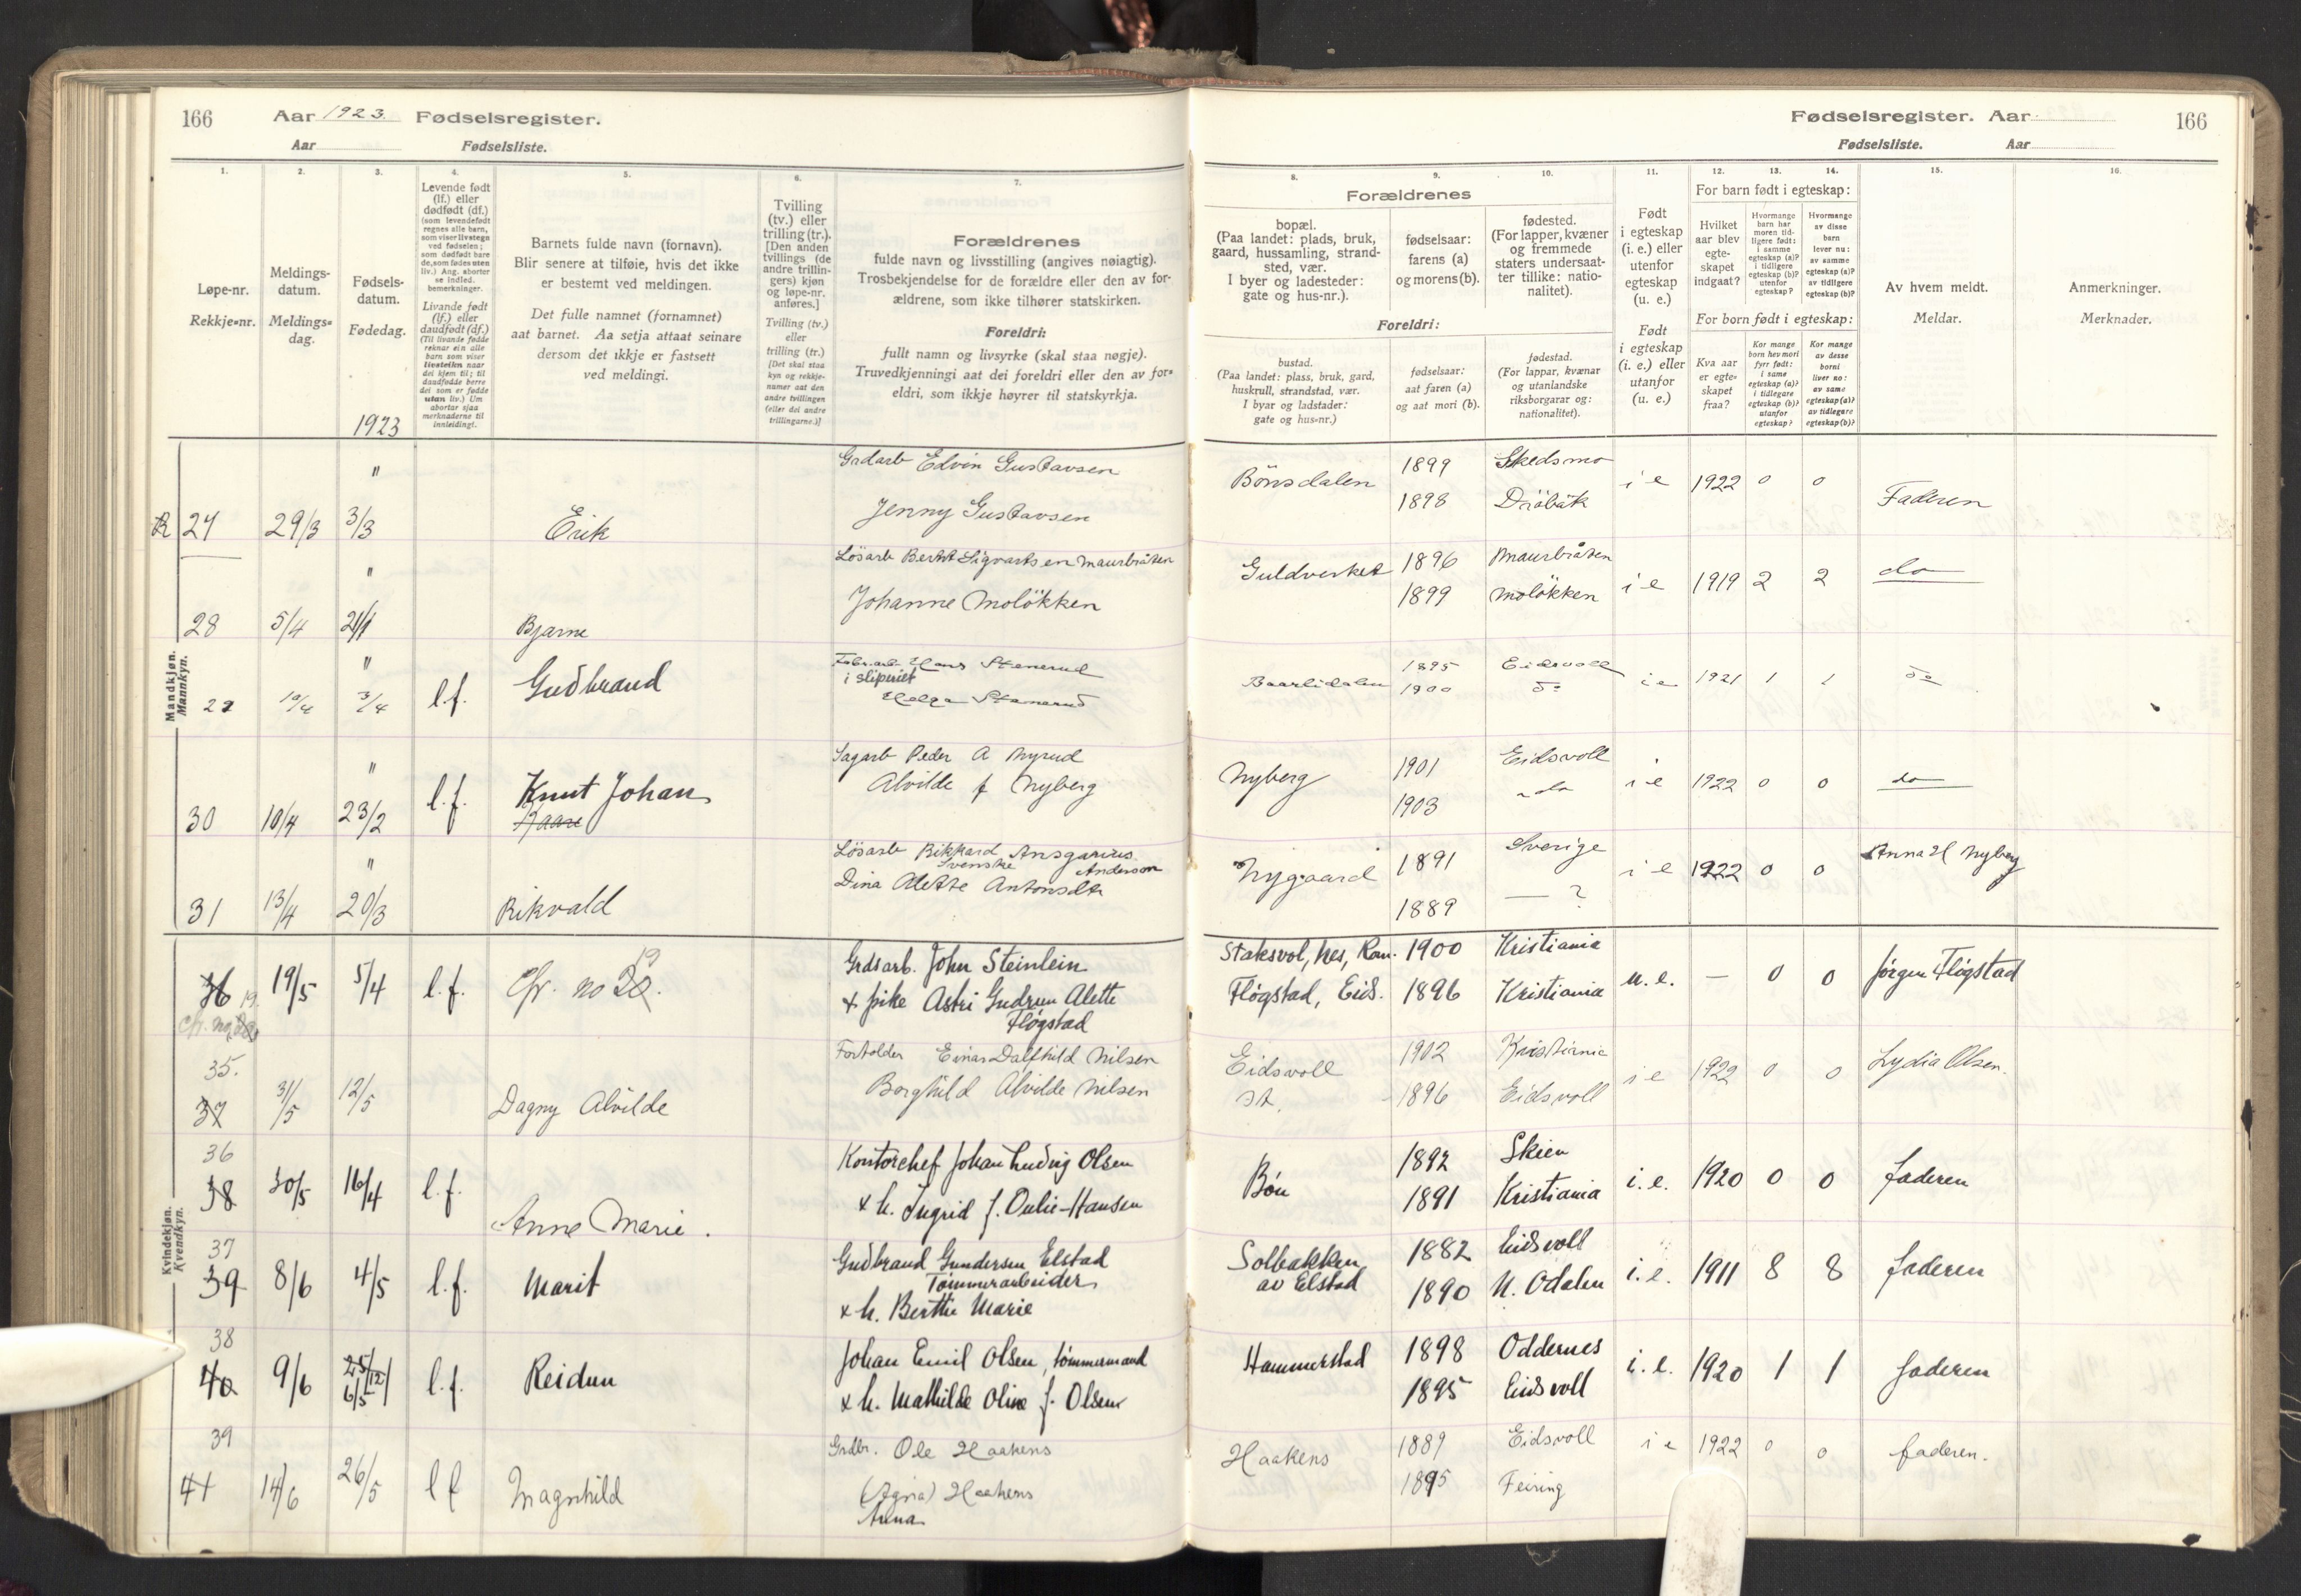 166 Aar 1923. Fødselsregister.
Aar Fødselsliste.
Fødselsregister. Aar 166
Fødselsliste. Aar
1. 2. 3. 4. 5. 6. 7.
Løpe-nr.
Rekkje=nr.
Meldings-
datum.
Meldings=
dag.
Fødsels-
datum.
Fødedag.
1923
Levende født
(lf.) eller
dødfødt (df.)
(som levendefødt
regnes alle barn,
som viser livstegn
ved fødselen;
som dødfødt bare
de, som fødes uten
liv.) Ang. aborter
se indled.
bemerkninger.
Livande født
(lf.) eller
daudfødt (df.)
(Til livande fødde
reknar ein alle
barn som viser
livsteikn naar
dei kjem til; til
daudfødde berre
dei som er fødde
utan liv.) Um
abortar sjaa
merknaderne til
innleidingi.
Barnets fulde navn (fornavn).
Blir senere at tilføie, hvis det ikke
er bestemt ved meldingen.
Det fulle namnet (fornamnet)
aat barnet. Aa setja attaat seinare
dersom det ikkje er fastsett
ved meldingi.
Tvilling
(tv.) eller
trilling (tr.).
[Den anden
tvillings (de
andre trillin-
gers) kjøn
og løpe-nr.
anføres.]
Tvilling (tv.)
eller
trilling (tr.)
[Det skal staa
kyn og rekkje-
numer aat den
andre tvillingen
(eller dei andre
trillingarne.)]
Forældrenes
fulde navn og livsstilling (angives nøiagtig).
Trosbekjendelse for de forældre eller den av for-
ældrene, som ikke tilhører statskirken.
Foreldri:
fullt namn og livsyrke (skal staa nøgje).
Truvedkjenningi aat dei foreldri eller den av for=
eldri, som ikkje høyrer til statskyrkja.
8. 9. 10. 11. 12. 13. 14. 15. 16.
Forældrenes
bopæl.
(Paa landet: plads, bruk,
gaard, hussamling, strand-
sted, vær.
I byer og ladesteder:
gate og hus-nr.).
fødselsaar:
farens (a)
og morens (b).
fødested.
(For lapper, kvæner
og fremmede
staters undersaat-
ter tillike: natio-
nalitet).
Foreldri:
bustad.
(Paa landet: plass, bruk, gard,
huskrull, strandstad, vær.
I byar og ladstader:
gate og hus=nr.)
fødselsaar:
aat faren (a)
og aat mori (b).
fødestad.
(For lappar, kvænar
og utanlandske
riksborgarar og:
nationalitet).
Født
i egteskap
(i. e.) eller
utenfor
egteskap
(u. e.)
Født
i egteskap
(i. e.) eller
utanfor
(u. e.)
For barn født i egteskap:
Hvilket
aar blev
egte-
skapet
indgaat?
Hvormange
barn har
moren tid-
ligere født:
i samme
egteskap (a)?
i tidligere
egteskap (b)?
utenfor
egteskap?
Hvormange
av disse
barn
lever nu:
av samme
egteskap (a)?
av tidligere
egteskap (b)?
For born født i egteskap:
Kva aar
er egte-
skapet
fraa?
Kor mange
born hev mori
fyrr født:
i same
egteskap (a)?
i tidlegare
egteskap (b)?
utanfor
egteskap?
Kor mange
av desse
borni
liver no:
av same
egteskap (a)?
av tidlegare
egteskap (b)?
Av hvem meldt.
Meldar.
Anmerkninger.
Merknader.
Mandkjøn.
Mannkyn.
" Gadarb Edvin Gustavsen 1899 Skedsmo
Bönsdalen i e 1922 0 0 Faderen
R 27 29/3 3/3 Erik Jenny Gustavsen 1898 Dröbak
" Lösarb Bernt Sigvartsen Maurbråten 1896 Maurbråten
Guldverket i e 1919 2 2 do
28 5/4 21/1 Bjarne Johanne Molökken 1899 Molökken
" Fabr.arb Hans Stenerud 1895 Eidsvoll
i sliperiet
29 10/4 3/4 l.f. Gudbrand Helga Stenerud Baarlidalen 1900 do i e 1921 1 1 do
" Sagarb Peder A Myrud 1901 Eidsvoll
30 10/4 23/2 l.f. Knut Johan Alvilde f Nyberg Nyberg 1903 do i e 1922 0 0 do
Kaare
" Lösarb Rikkard Ansgarius 1891 Sverige
Svenske Anderson
31 13/4 20/3 Rikvald Dina Alette Antonsdtr Nygaard 1889 — ? i e 1922 0 0 Anna H Nyberg
Kvindekjøn.
Kvendkyn.
36 19/5 5/4 l.f. Cfr. no 20. 19 Grdsarb. John Steinlein Staksvol, Nes, Rom. 1900 Kristiania
19. + pike Astri Gudrun Alette Fløgstad, Eids. 1896 Kristiania u. e. — 0 0 Jørgen Fløgstad
cfr. no 20 Fløgstad
35. Forholder Einar Dalfhild Nilsen Eidsvoll 1902 Kristiania
37 31/5 12/5 Dagny Alvilde Borghild Alvilde Nilsen st. 1896 Eidsvoll i e 1922 0 0 Lydia Olsen.
36 Kontorchef Johan Ludvig Olsen 1892 Skien
38 30/5 16/4 l.f. Anne Marie. + h. Ingrid f. Oulie-Hansen Bøn 1891 Kristiania i. e. 1920 0 0 faderen
37 Gudbrand Gundersen Elstad Solbakken 1882 Eidsvoll
39 8/6 4/5 l.f. Marit Tømmerarbeider av Elstad 1890 N. Odalen i. e. 1911 8 8 faderen
+ h. Berthe Marie
38 Johan Emil Olsen, tømmermand Hammerstad 1898 Oddernes
40 9/6 25/12 6/5 l.f. Reidun + h. Mathilde Oline f. Olsen 1895 Eidsvoll i. e. 1920 1 1 faderen
39 Grdbr. Ole Haakens 1889 Eidsvoll
41 14/6 26/5 l f Magnhild (Agna) Haakens Haakens 1895 Feiring i e 1922 0 0 faderen.
Anna